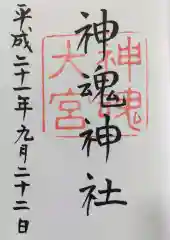 神魂神社
平成二十一年九月二十二日
神魂
大宮